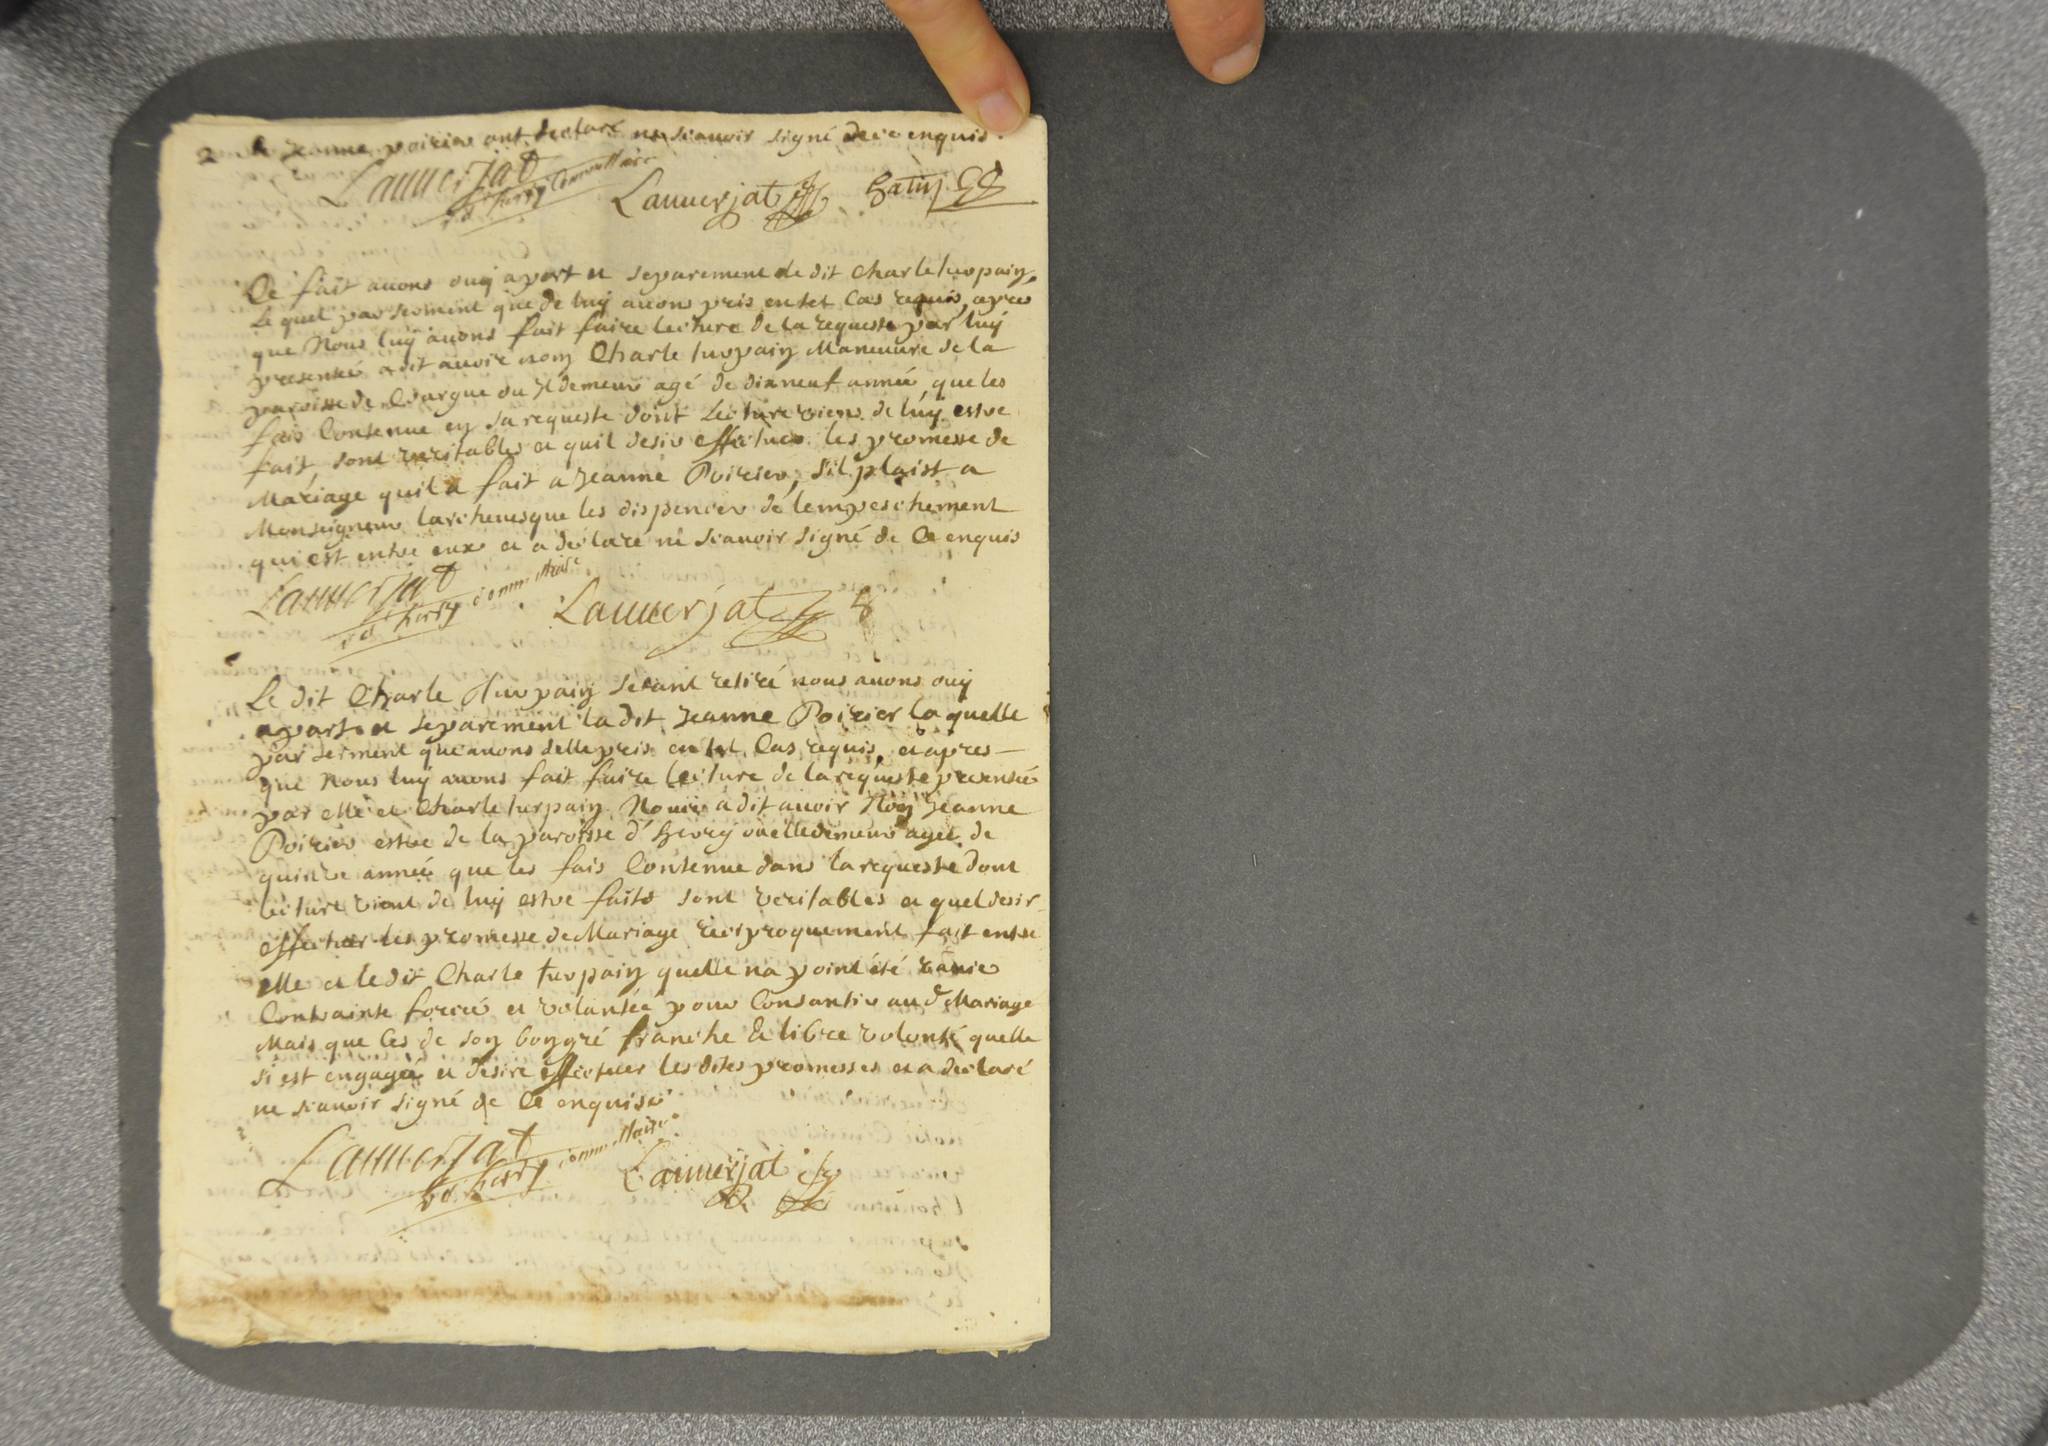 2 & Jeanne poirier ont declaré ne scauoir signé de ce enquis.
Lauuerjat
Commissaire
Lauuerjat
Ce fait auons ouij apart et separement le dit Charle turpain,
Le quel par serment que de luy auons pris en tel Cas requis, apres
que Nous luÿ auons fait faire lecture de la requeste par luÿ
presentée a dit auoir nom Charle turpain Maneuure de la
paroisse de ou Il demeure agé de dixneuf année, que les
fais Contenue en sa requeste dont Lecture vien de luÿ estre
fait, sont veritables et quil desir effectuer les promesse de
Mariage quil a fait a Jeanne Poirier, sil plaist a
Monseigneur larcheuesque les dispencer de lempeschement
qui est entre eux et a declaré ne scauoir signé de Ce enquis
Lauuerjat
commissaire
Lauuerjat
Le dit Charle turpain setant retiré nous auons ouij
apart et separement la dit Jeanne Poirier laquelle
par serment que auons delle pris en tel Cas requis, et apres
que Nous luÿ auons fait faire lecture de la requeste presentée
par elle et Charle turpain a dit auoir Nom Jeanne
Poirier estre de la paroisse d' ou elle demeure ageé de
quinze année que les fais Contenue dans la requeste dont
lecture vient de luÿ estre faite sont veritables et quel desir
effectuer les promesse de Mariage reciproquement fait entre
elle et le dit Charle turpain quelle na point été
Contrainte forcée et volantée pour Consantir au d Mariage
Mais que Ces de son bon gré franche & libre volonté quelle
si est engagée et desire effectuer les dites promesses et a declaré
ne scauoir signé de Ce enquise
Lauuerjat
commissaire
Lauuerjat